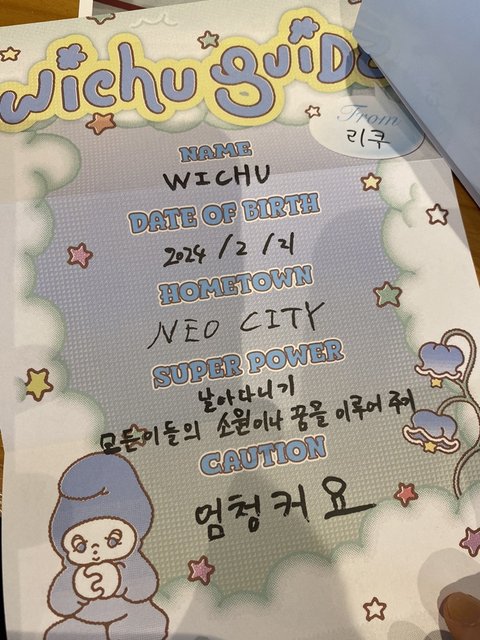 wichu guide
From
리쿠
NAME
WICHU
DATE OF BIRTH
2024 / 2 / 21
HOMETOWN
NEO CITY
SUPER POWER
날아다니기
모든이들의 소원이나 꿈을 이루어 주어
CAUTION
엄청커요